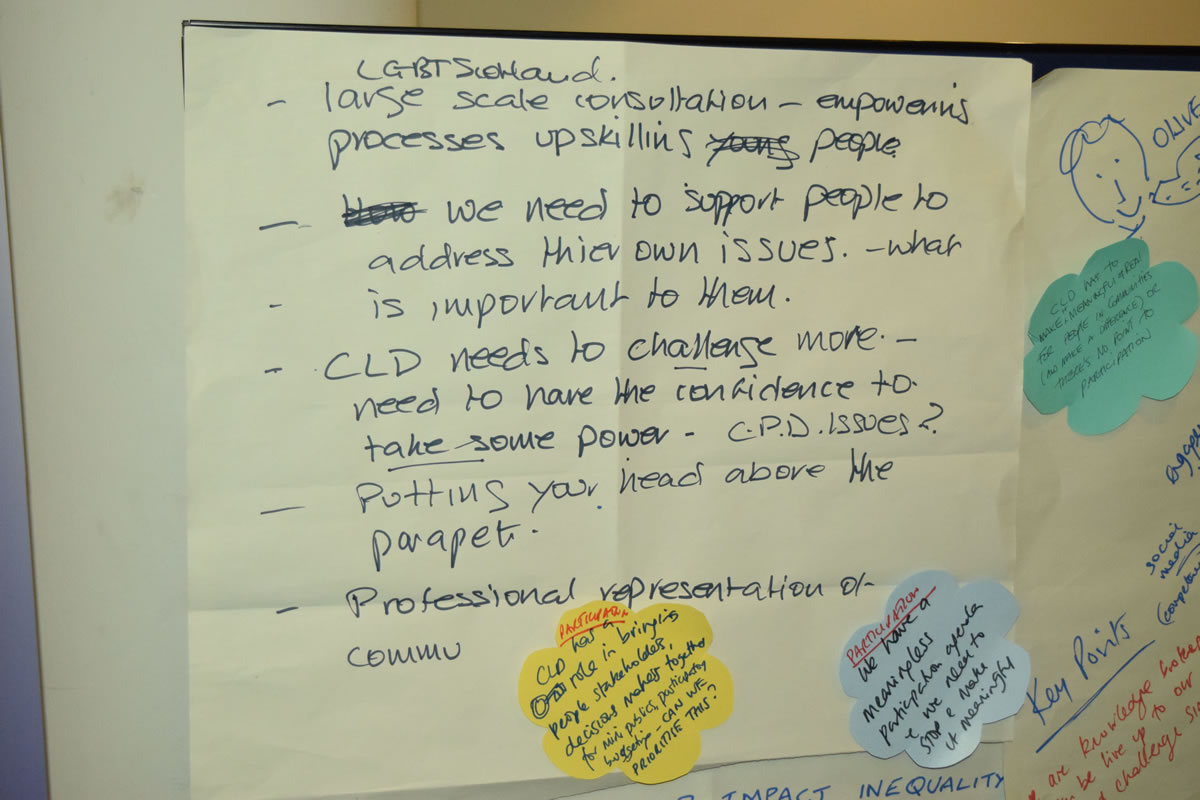 LGBT Scotland.
- large scale consultation - empowering
processes upskilling young people
- How we need to support people to
address thier own issues. - what
- is important to them.
- CLD needs to challenge more. -
need to have the confidence to
take some power - C.P.D. Issues?
- Putting your head above the
parapet.
- Professional representation of
commu
PARTICIPATION
CLD has a
role in bringing
people stakeholders,
decision makers together
for mini publics, participatory
budgeting - CAN WE
PRIORITISE THIS?
PARTICIPATION
We have a
meaningless
participation agenda
& we need to
STOP & make
it meaningful
OLIVE
CLD HAS TO
MAKE IT MEANINGFUL & REAL
FOR PEOPLE IN COMMUNITIES
(AND MAKE A DIFFERENCE) OR
THERE'S NO POINT TO
PARTICIPATION
social
media
Key Points
are knowledge
be live up to our
challenge
IMPACT INEQUALITY